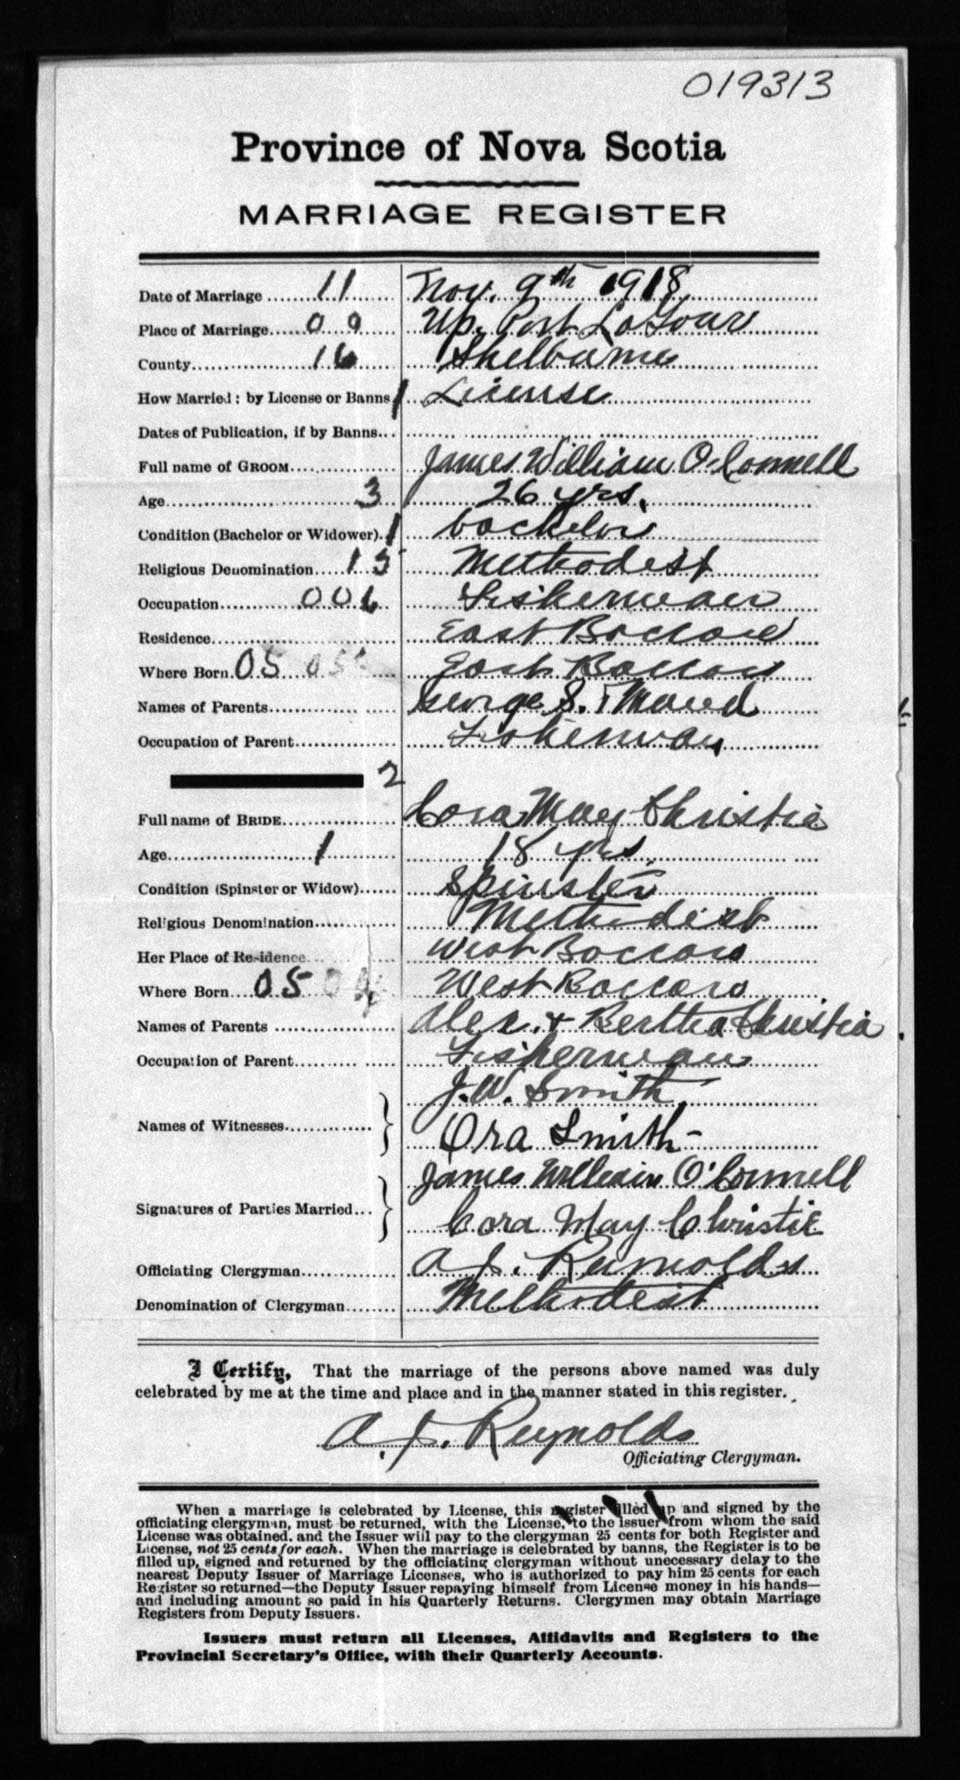 019313
Province of Nova Scotia
MARRIAGE REGISTER
Date of Marriage ...... 11 ...... Nov. 9th 1918
Place of Marriage..... 0 0 ..... Up. Port LaTour
County............. 16 ..... Shelburne
How Married: by License or Banns 1 License
Dates of Publication, if by Banns...
Full name of GROOM............... James William O'Connell
Age........................ 3 ..... 26 yrs.
Condition (Bachelor or Widower). 1 bachelor
Religious Denomination.... 13 ..... Methodist
Occupation............ 006 ..... Fisherman
Residence........................ East Baccaro
Where Born. 05 05 ..... East Baccaro
Names of Parents................ George S. & Maud
Occupation of Parent............. Fisherman
2
Full name of BRIDE............... Cora May Christie
Age.................. 1 ..... 18 yrs.
Condition (Spinster or Widow)...... Spinster
Religious Denomination............ Methodist
Her Place of Residence West Baccaro
Where Born.... 05 0 ..... West Baccaro
Names of Parents ................ Alex. & Bertha Christie
Occupation of Parent............. Fisherman
J.W. Smith
Names of Witnesses............. } Ora Smith
James William O'Connell
Signatures of Parties Married... } Cora May Christie
Officiating Clergyman............. A.J. Reynolds
Denomination of Clergyman........ Methodist
I Certify, That the marriage of the persons above named was duly
celebrated by me at the time and place and in the manner stated in this register.
A.J. Reynolds
Officiating Clergyman.
When a marriage is celebrated by License, this register filled up and signed by the
officiating clergyman, must be returned, with the License, to the issuer from whom the said
License was obtained, and the Issuer will pay to the clergyman 25 cents for both Register and
License, not 25 cents for each. When the marriage is celebrated by banns, the Register is to be
filled up, signed and returned by the officiating clergyman without unecessary delay to the
nearest Deputy Issuer of Marriage Licenses, who is authorized to pay him 25 cents for each
Register so returned—the Deputy Issuer repaying himself from License money in his hands—
and including amount so paid in his Quarterly Returns. Clergymen may obtain Marriage
Registers from Deputy Issuers.
Issuers must return all Licenses, Affidavits and Registers to the
Provincial Secretary's Office, with their Quarterly Accounts.